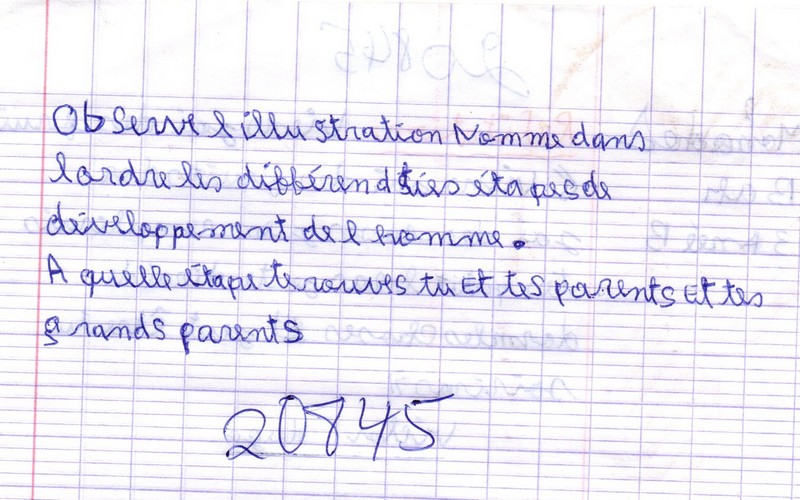 Observe l illustration Nomme dans
lordre les différendties étapes de
développement de l homme.
A quelle étape te rouves tu Et tes parents Et tes
grands parents
20845